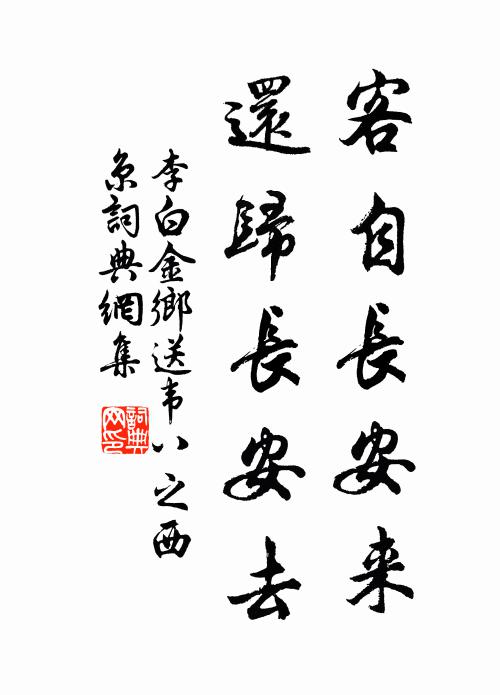 客自長安来
還歸長安去
李白金鄉送韦八之西
京詞典網集
詞典
网印